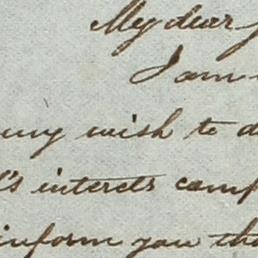 My dear
I am
my wish to d
's interets comp
inform you tha